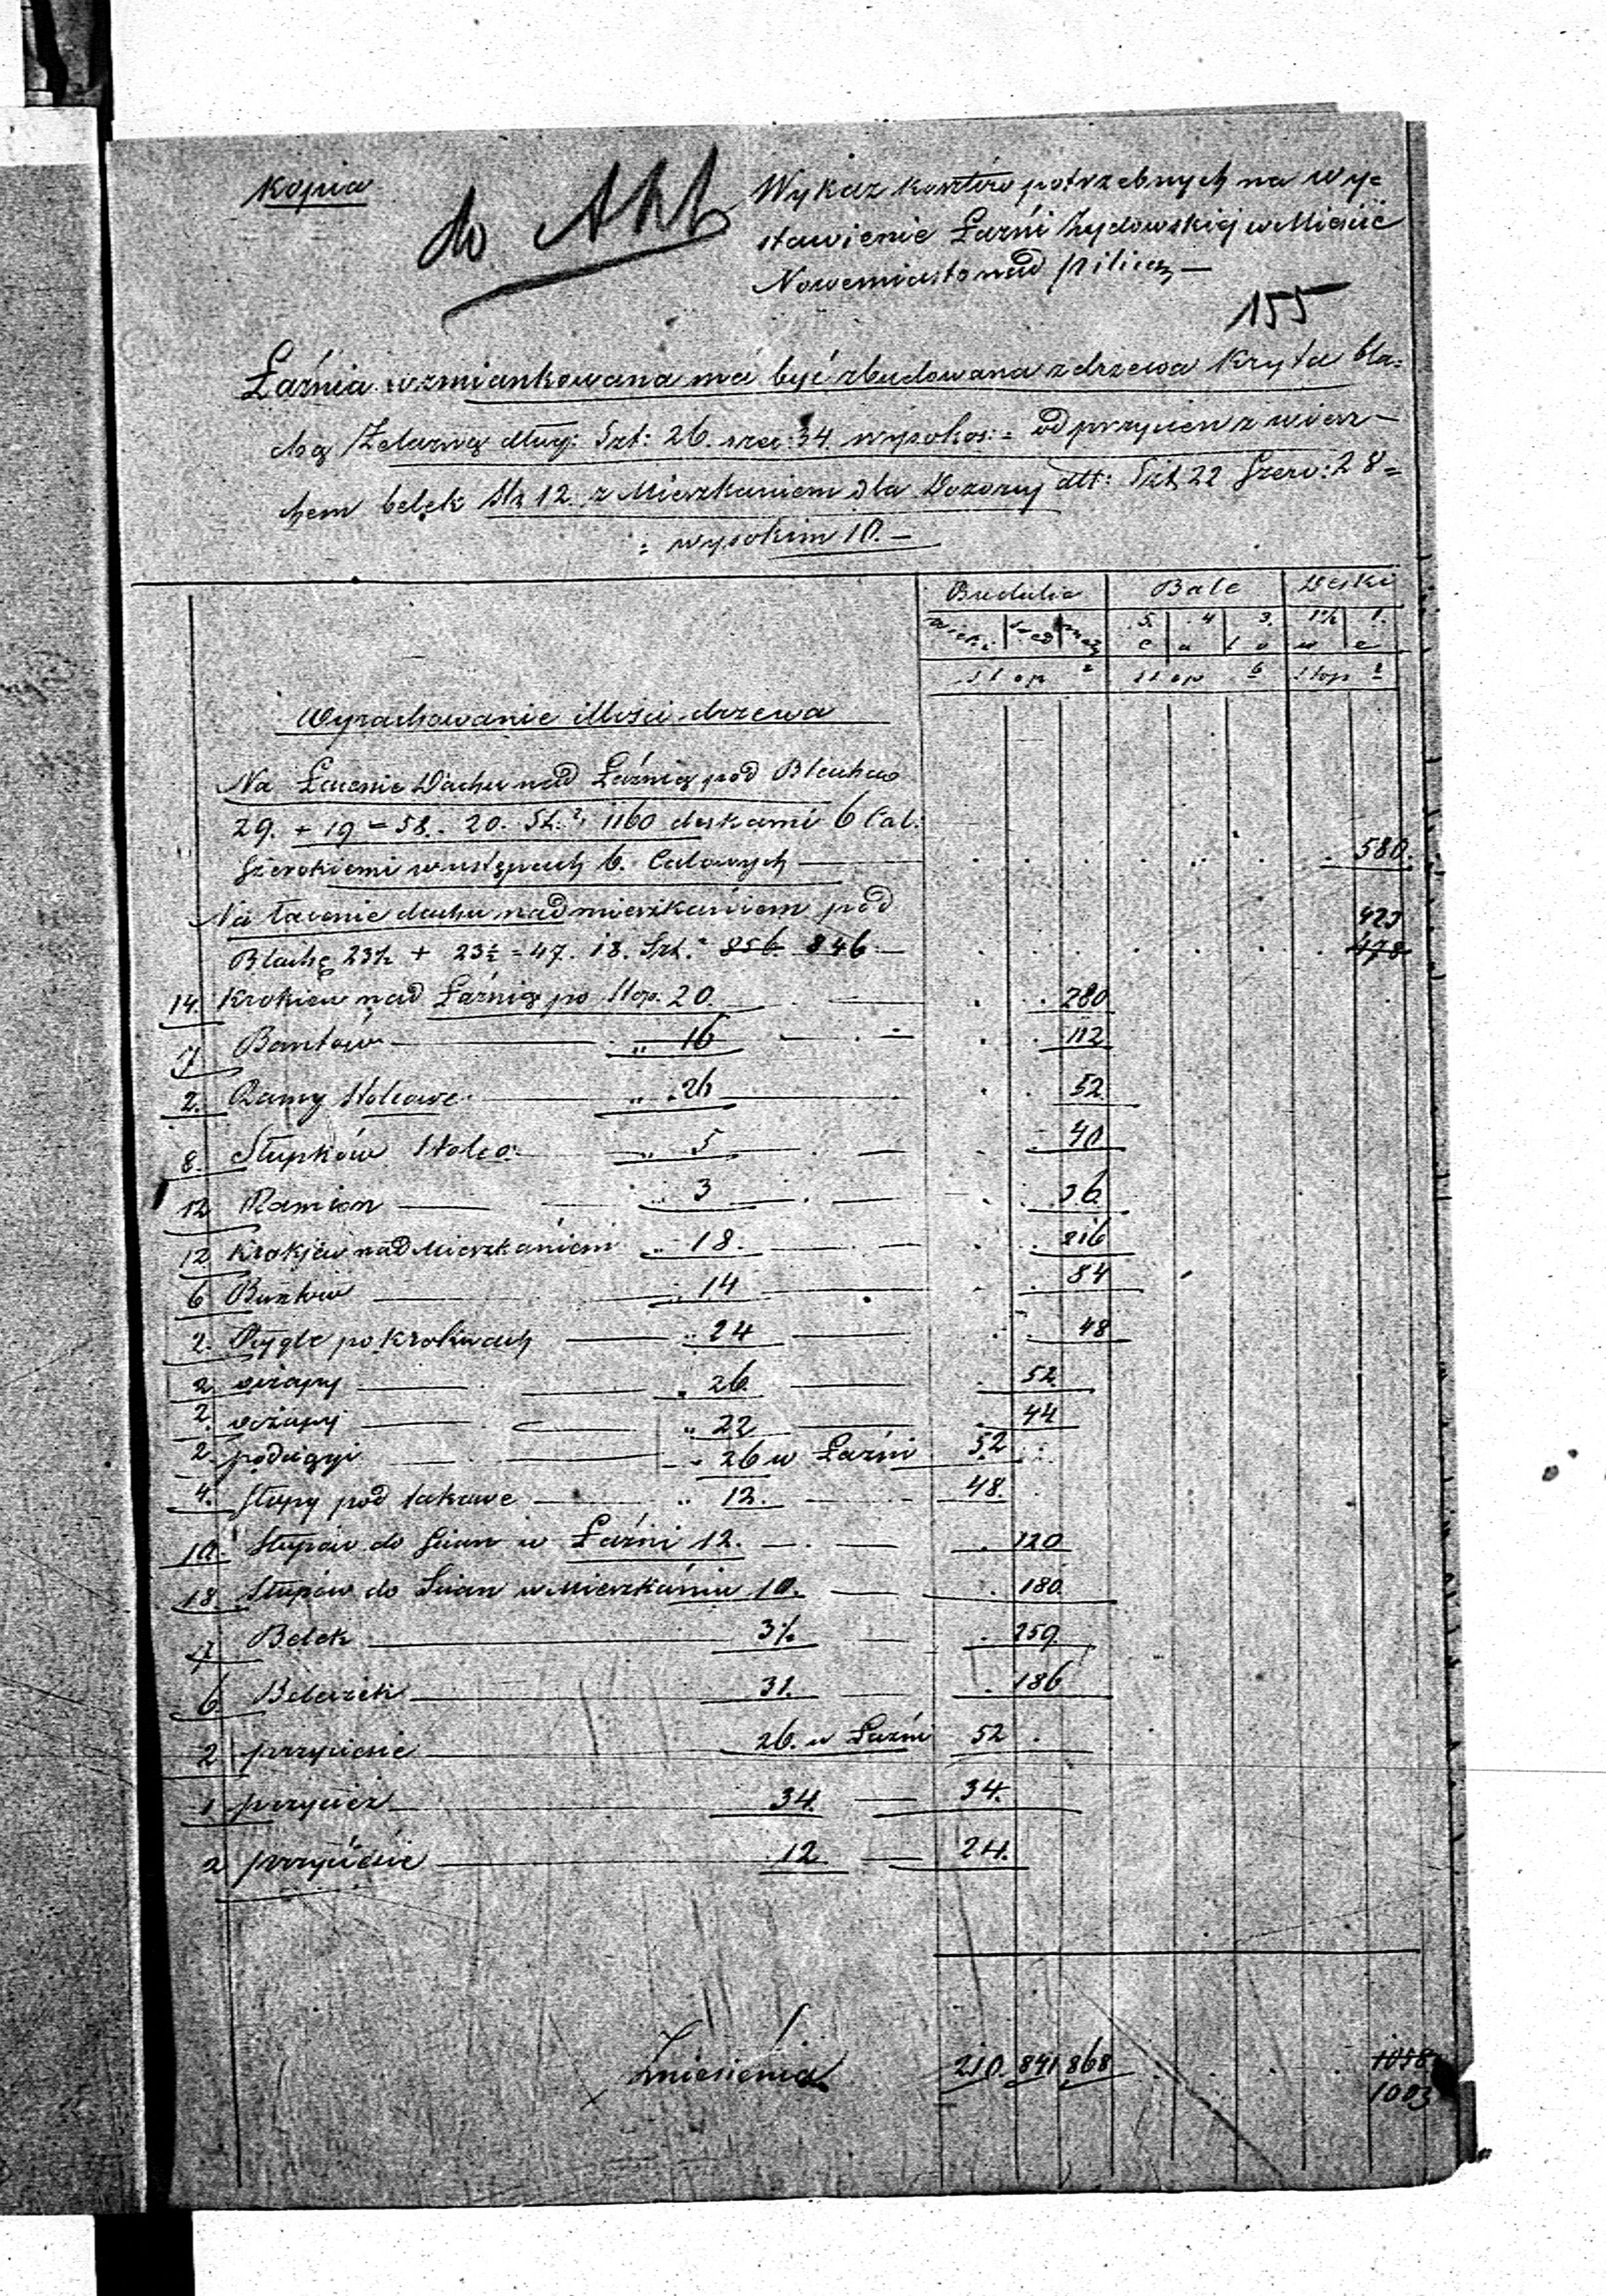 Kopia
do Akt
Wykaz kosztów potrzebnych na wy=
stawienie Łaźni Żydowskiej w Mieście
Nowemiasto nad Pilicą —
155
Łaźnia wzmiankowana ma być zbudowana z drzewa Kryta bla=
chą Żelazną dług: St: 26. szer: 34 wysokoś: = od przycien z wierz-
chem belek St: 12. z Mieszkaniem dla Dozorcy dłt: St: 22 Szero: 28=
= wysokim 10. —
Budulec Bale Deski
5. 4 3. 1½ 1.
c a l o w e
Stop Stop 6 Stop
Wyrachowanie ilości drzewa
Na Łacenie Dachu nad Łaźnią pod Blachę
29. + 19 = 58. 20. St.² 1160 deskami 6 Cal:
Szerokiemi w ustępach 6. Calowych — 580.
Na Łacenie dachu nad mieszkaniem pod 423
Blachę 23½ + 23½ = 47. 18. St.² 856 846 — 478
14. Krokiew nad Łaźnią po Stop. 20. 280
7 Bantów — " 16 112
2. Ramy Stolcowe — " 26 52
8. Słupków Stolco: " 5 40
12 Ramion — " 3 36
12 Krokjew nad Mieszkaniem " 18. 216
6 Bantów — " 14 84
2. Rygle po Krokwach — " 24 48
2 oczapy — " 26 52
2. oczapy — " 22 44
2. podciągi — " 26 w Łaźni 52
4. Słupy pod takowe — " 12. 48.
10. Słupów do Ścian w Łaźni 12. 120
18 Słupów do Ścian w Mieszkaniu 10. 180
7 Belek — 37 259
6 Beleczek — 31. 186
2 przyciesie — 26. w Łaźni 52
1 przycieś — 34. 34.
2 przyciesie — 12 24.
Zniesienia 210. 841 868 1058
1003